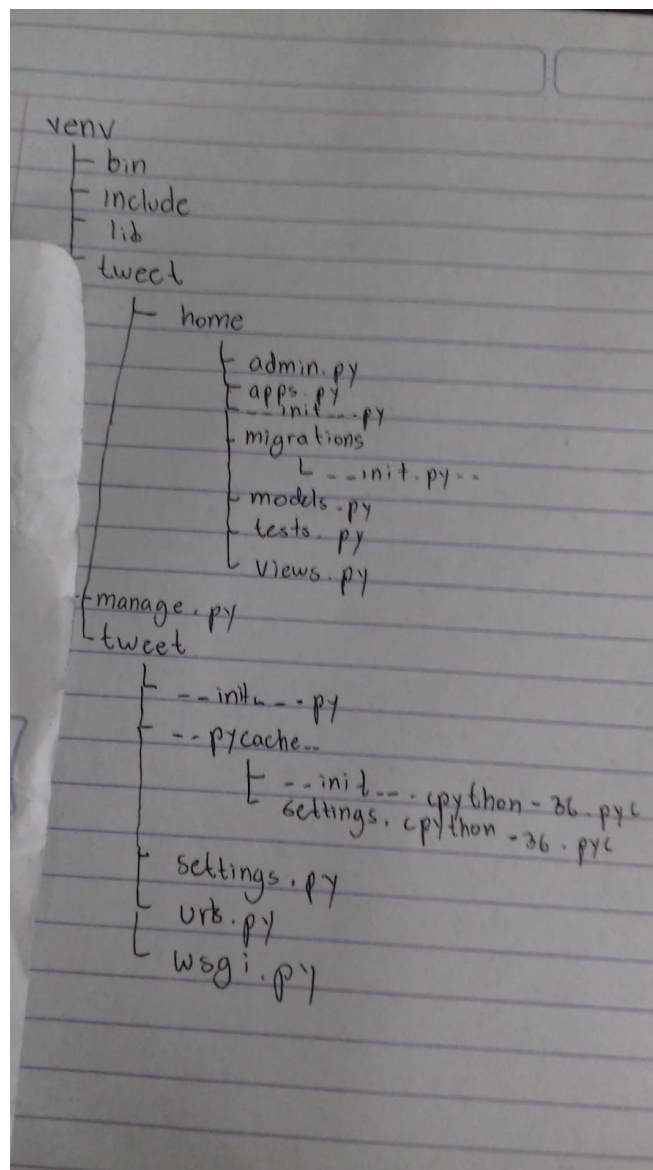 venv
├ bin
├ include
├ lib
├ tweet
├ home
├ admin.py
├ apps.py
├ __init__.py
├ migrations
└ __init.py__
├ models.py
├ tests.py
└ views.py
├ manage.py
└ tweet
├ __init__.py
├ __pycache__
├ __init__.cpython-36.pyc
└ settings.cpython-36.pyc
├ settings.py
├ urls.py
└ wsgi.py